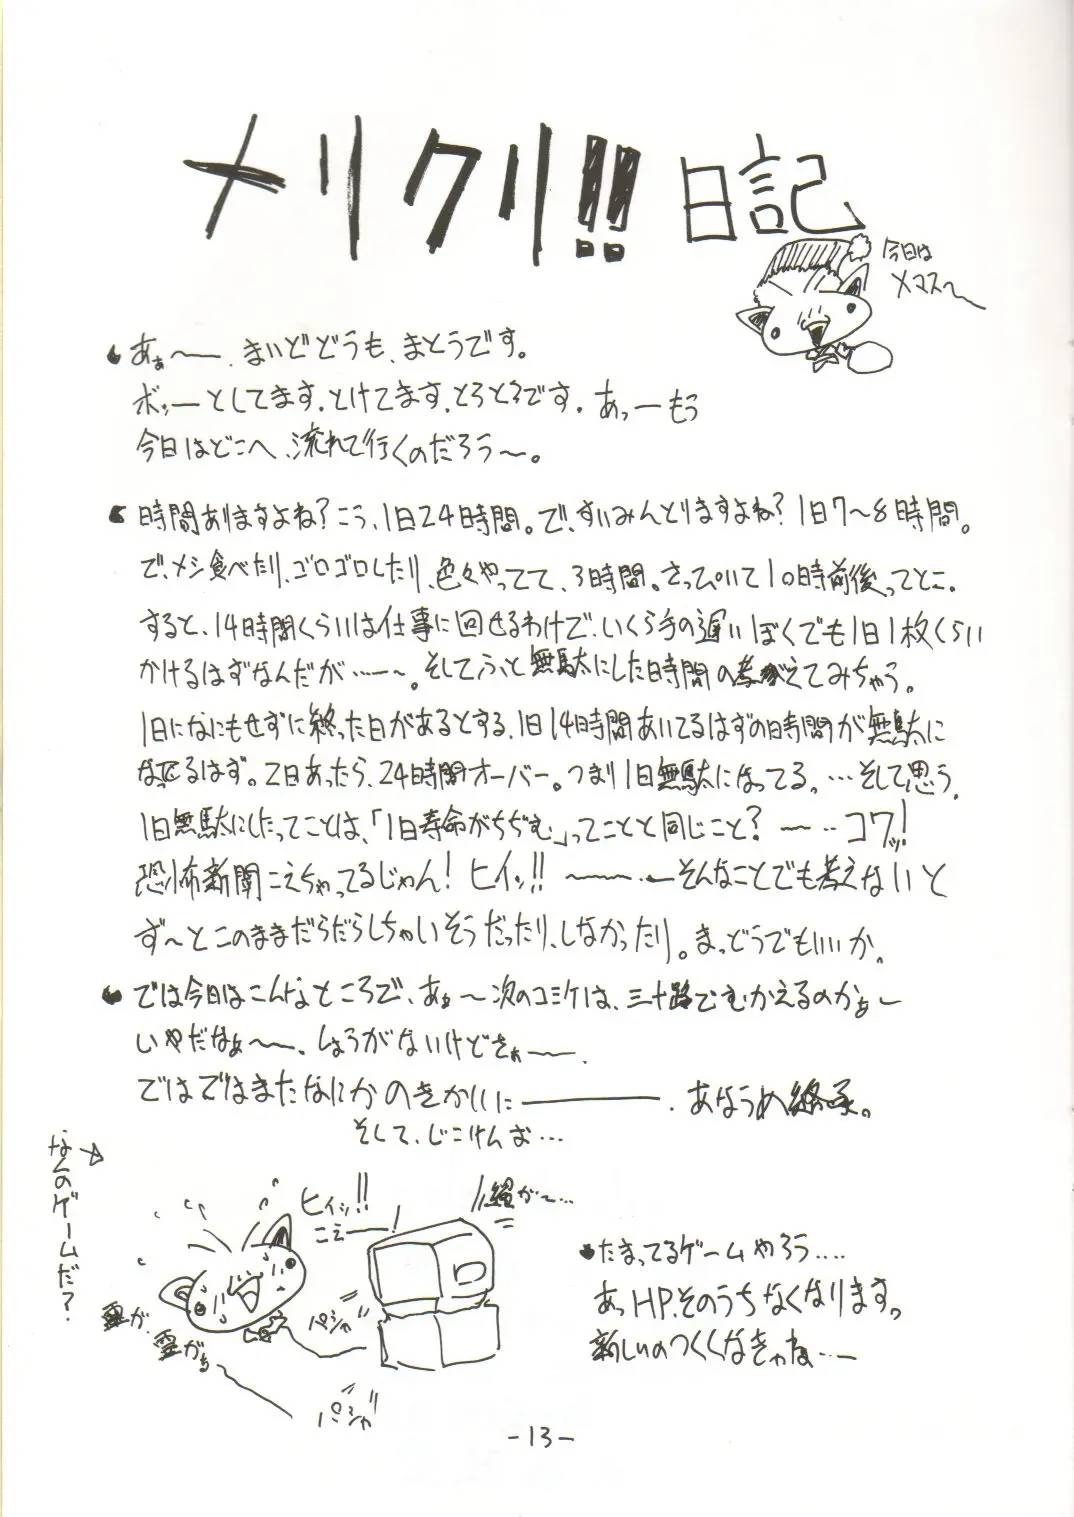 メリクリ!! 日記
今日は
メマス～
あぁ～ー、まいどどうも、まとうです。
ボッーとしてます、とけてます、とろとろです。あっーもう
今日はどこへ、流れて行くのだろう～。
時間ありますよね?こう、1日24時間。で、すいみんとりますよね?1日7～8時間。
で、メシ食べたり、ゴロゴロしたり、色々やってて、3時間。さっぴいて10時前後ってとこ。
すると、14時間くらいは仕事に回せるわけで、いくら手の遅いぼくでも1日1枚くらい
かけるはずなんだが……～。そしてふと無駄にした時間の考がえてみちゃう。
1日になにもせずに終った日があるとする、1日14時間あいてるはずの時間が無駄に
なってるはず。2日あったら、24時間オーバー。つまり1日無駄になってる。…そして思う。
1日無駄にしたってことは、「1日寿命がちぢむ」ってことと同じこと?～‥コワッ!
恐怖新聞こえちゃってるじゃん!ヒイッ!!～～‥ーそんなことでも考えないと
ず～とこのままだらだらしちゃいそうだったり、しなかったり。まっどうでもいいか。
では今日はこんなところで、あぁ～次のコミケは、三十路でむかえるのかぁー
いやだなぁ～ー、しょうがないけどさぁーー、
ではではまたなにかのきかいに―――――、あなうめ終了。
そして、じこけんお…
なんのゲームだ?
ヒイッ!!
こえー!
霊が、
霊がぁ
パシャ
パシャ
たまってるゲームやろう‥‥
あっHP、そのうちなくなります。
新しいのつくんなきゃね…ー
-13-